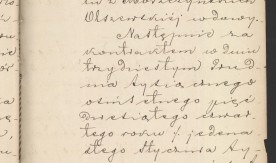 Olszewskiéj wdowy.
Następnie za
kontraktem w dniu
trzydziestym Grud
nia tysiącznego
ośmsetnego pięć
dziesiątego czwar
tego roku / jedena
stego Stycznia ty-